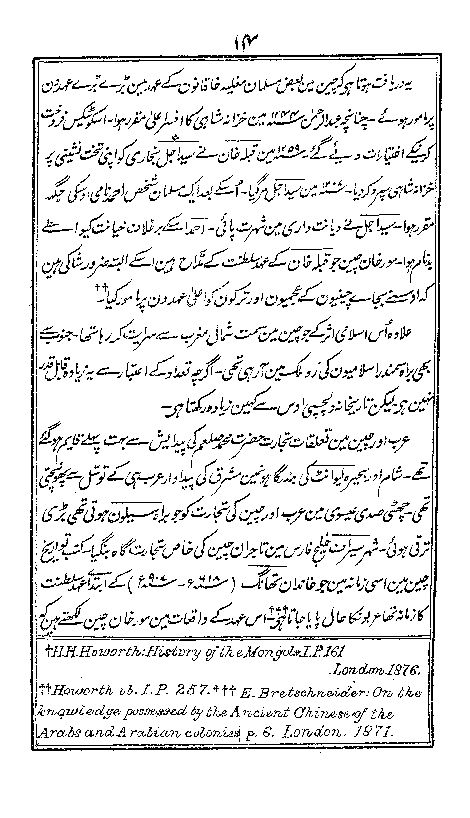 یہ دریافت ہوتا ہے کہ چین مین بعض مسلمان مغلیہ خاقانون کے عہد مین بڑے بڑے عہدون
پر مامور ہوئے۔ چنانچہ عبدالرحمن سنہ ۱۲۴۴ مین خزانہ شاہی کا افسر اعلیٰ مقرر ہوا۔
کرنیکے اختیارات دیئے گئے سنہ ۱۲۵۹ مین قبلہ خان نے سید اجل بخاری کو اپنی تخت نشینی پر
خزانہ شاہی سپرد کردیا۔ مین سید اجل مرگیا۔ اُسکے بعد ایک مسلمان شخص احمد نامی اوسکی جگہ
مقرر ہوا۔ سید اجل نے دیانت داری مین شہرت پائی۔ احمد اسکے برخلاف خیانت کیواسطے
بدنام ہوا۔ مورخان چین جو قبلہ خان کے عہد سلطنت کے مداح ہین اسکے البتہ ضرور شاکی ہین
کہ اوسنے بجائے چینیون کے عجمیون اور ترکون کو اعلیٰ عہدون پر مامور کیا††۔
علاوہ اُس اسلامی اثر کے جو چین مین سمت شمالی مغرب سے سرایت کر رہا تھا۔ جنوب سے
بھی براہ سمندر اسلامیون کی رو ملک مین آرہی تھی۔ اگرچہ تعداد کے اعتبار سے یہ زیادہ قابل قدر
نہین ہے لیکن تاریخانہ دلچسپی اوس سے کہین زیادہ رکھتا ہے۔
عرب اور چین مین تعلقات تجارت حضرت محمد صلعم کی پیدایش سے بہت پہلے قایم ہوگئے
تھے۔ شام اور بحیرہ لیوانٹ کی بندرگاہونمین مشرق کی پیداوار عرب ہی کے توسل سے پہونچتی
تھی۔ چھٹی صدی عیسوی مین عرب اور چین کی تجارت کو جو براہ سیلون ہوتی تھی بڑی
ترقی ہوئی۔ شہر سیراف خلیج فارس مین تاجران چین کی خاص تجارت گاہ بنگیا۔ کتب تواریخ
چین مین اسی زمانہ مین جو خاندان تھانگ (سنہ ۶۱۸ء - سنہ ۹۰۷ء) کے ابتدائے عہد سلطنت
کا زمانہ تھا عربونکا حال پایا جاتا ہے††† اس عہد کے واقعات مین مورخان چین لکھتے ہین کہ
†H.H.Howorth:History of the Mongols.I.P.161
London.1876.
††Howorth ib.I.P. 257.††† E. Bretschneider: On the
knowledge possessed by the Ancient Chinese of the
Arabs and Arabian colonies p. 6. London. 1871.